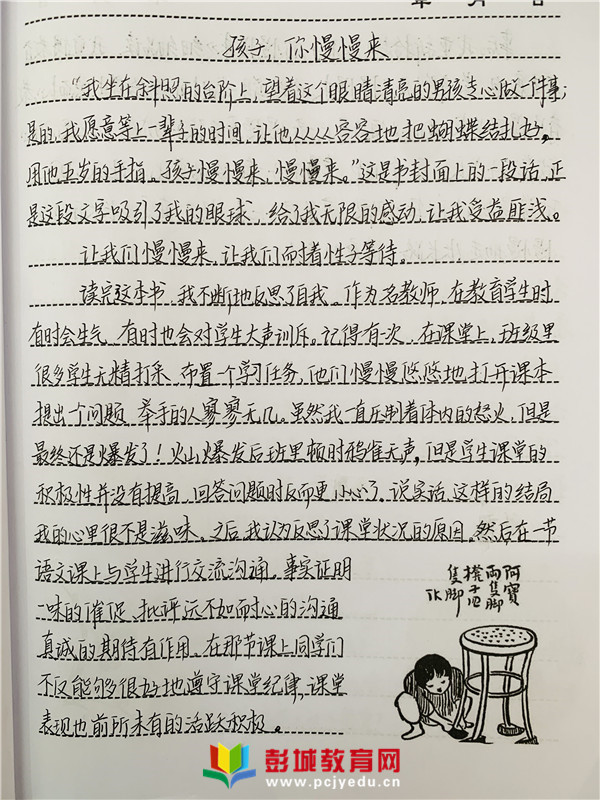 年 月 日
孩子，你慢慢来
“我坐在斜照的台阶上，望着这个眼睛清亮的男孩专心做一件事；
是的，我愿意等上一辈子的时间，让他从从容容地把蝴蝶结扎好，
用他五岁的手指。孩子慢慢来，慢慢来。”这是书封面上的一段话，正
是这段文字吸引了我的眼球，给了我无限的感动，让我受益匪浅。
让我们慢慢来，让我们耐着性子等待。
读完这本书，我不断地反思了自我。作为名教师，在教育学生时
有时会生气，有时也会对学生大声训斥。记得有一次，在课堂上，班级里
很多学生无精打采，布置一个学习任务，他们慢慢悠悠地打开课本
提出一个问题，举手的人寥寥无几。虽然我一直压制着体内的怒火，但是
最终还是爆发了！火山爆发后班里顿时鸦雀无声，但是学生课堂的
积极性并没有提高，回答问题时反而更小心了。说实话，这样的结局
我的心里很不是滋味。之后，我认为反思了课堂状况的原因。然后在一节
语文课上与学生进行交流沟通。事实证明
一味的催促、批评远不如耐心的沟通
真诚的期待有作用。在那节课上同学们
不仅能够很好地遵守课堂纪律，课堂
表现也前所未有的活跃积极。
阿寶
兩隻腳
櫈子四
隻腳
TK
彭城教育网
www.pcjyedu.cn